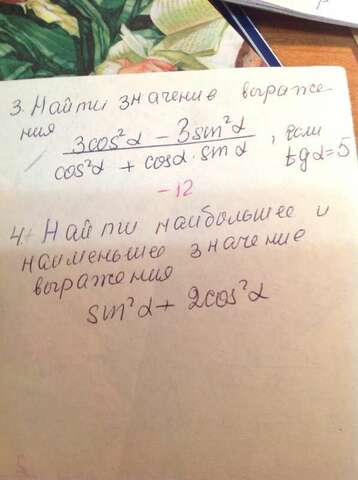 3. Найти значение выраже-
ния
3cos²α - 3sin²α
cos²α + cosα · sinα
, если
tgα=5
-12
4. Найти наибольшее и
наименьшее значение
выражения
sin²α + 2cos²α